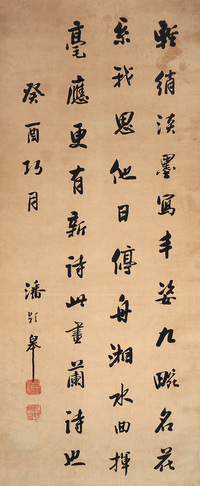 輕綃淡墨寫丰姿九畹名花
系我思他日停舟湘水曲揮
毫應更有新詩此畫蘭詩也
癸酉巧月
潘齡皋